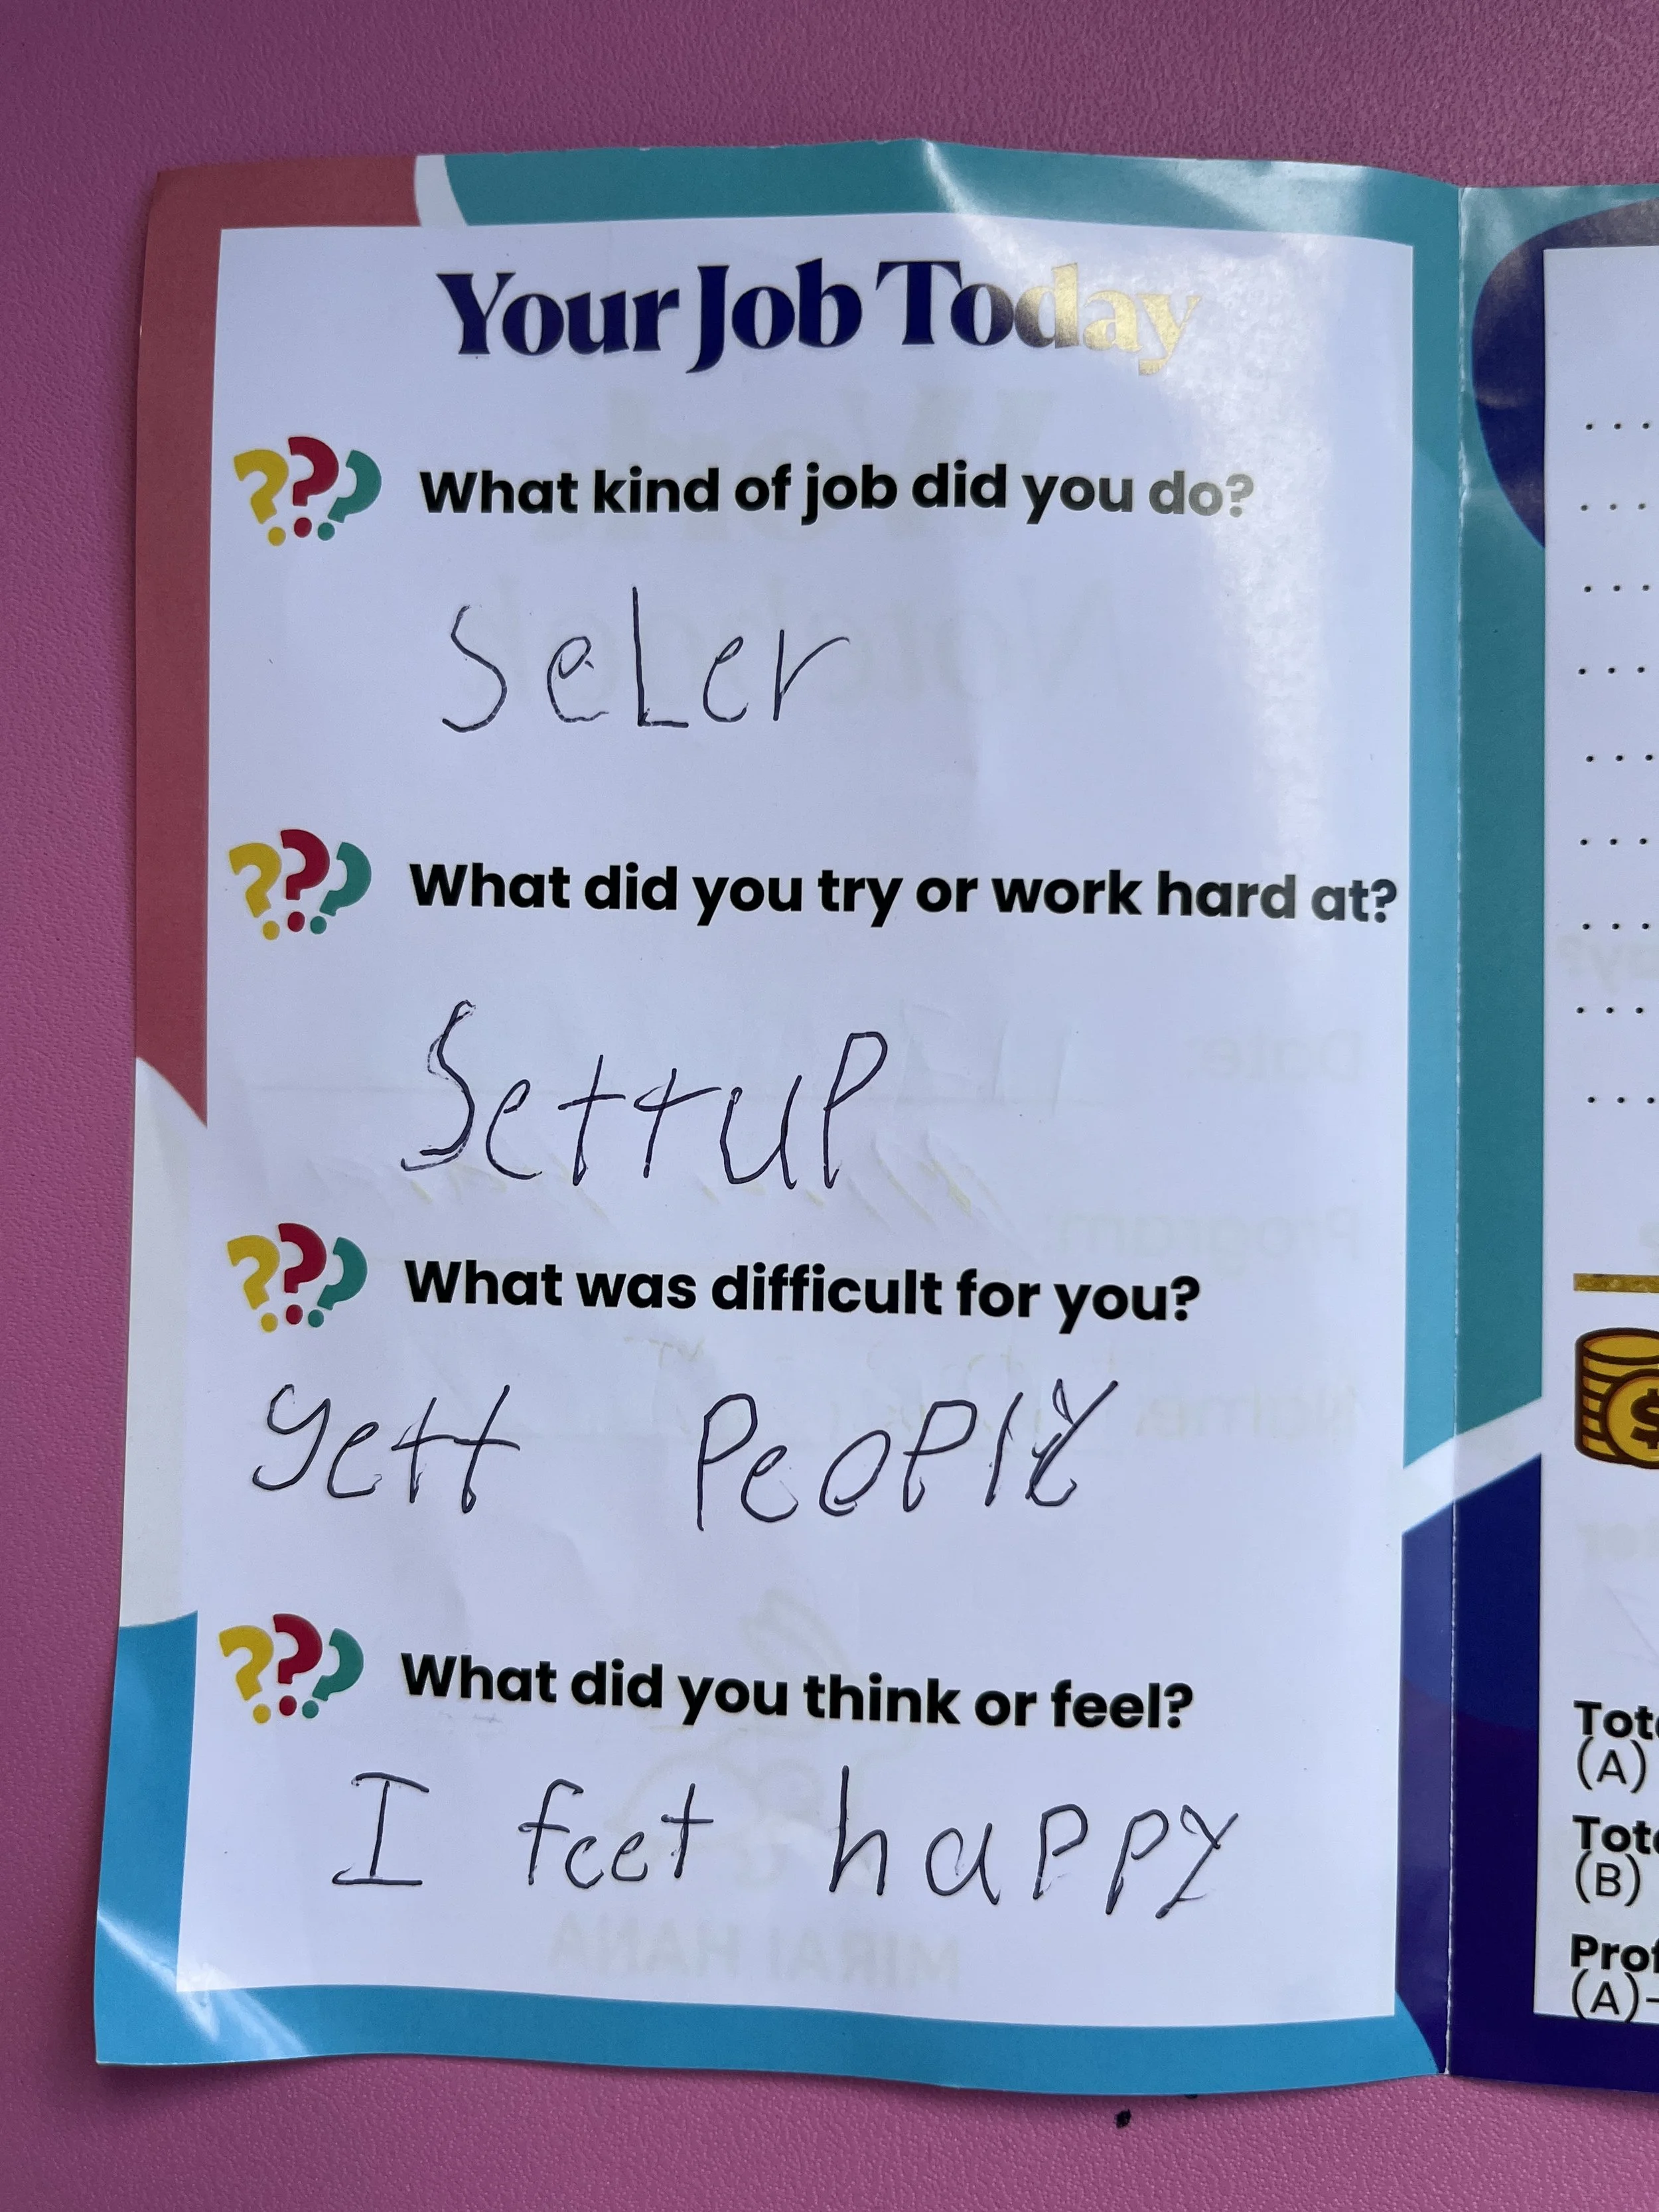 Your Job Today
??? What kind of job did you do?
SeLer
??? What did you try or work hard at?
SettuP
??? What was difficult for you?
gett PeoPle
??? What did you think or feel?
I feet happy
Tot
(A)
Tot
(B)
Prof
(A)-
MIRAI HANA
Date:
Program
Name: